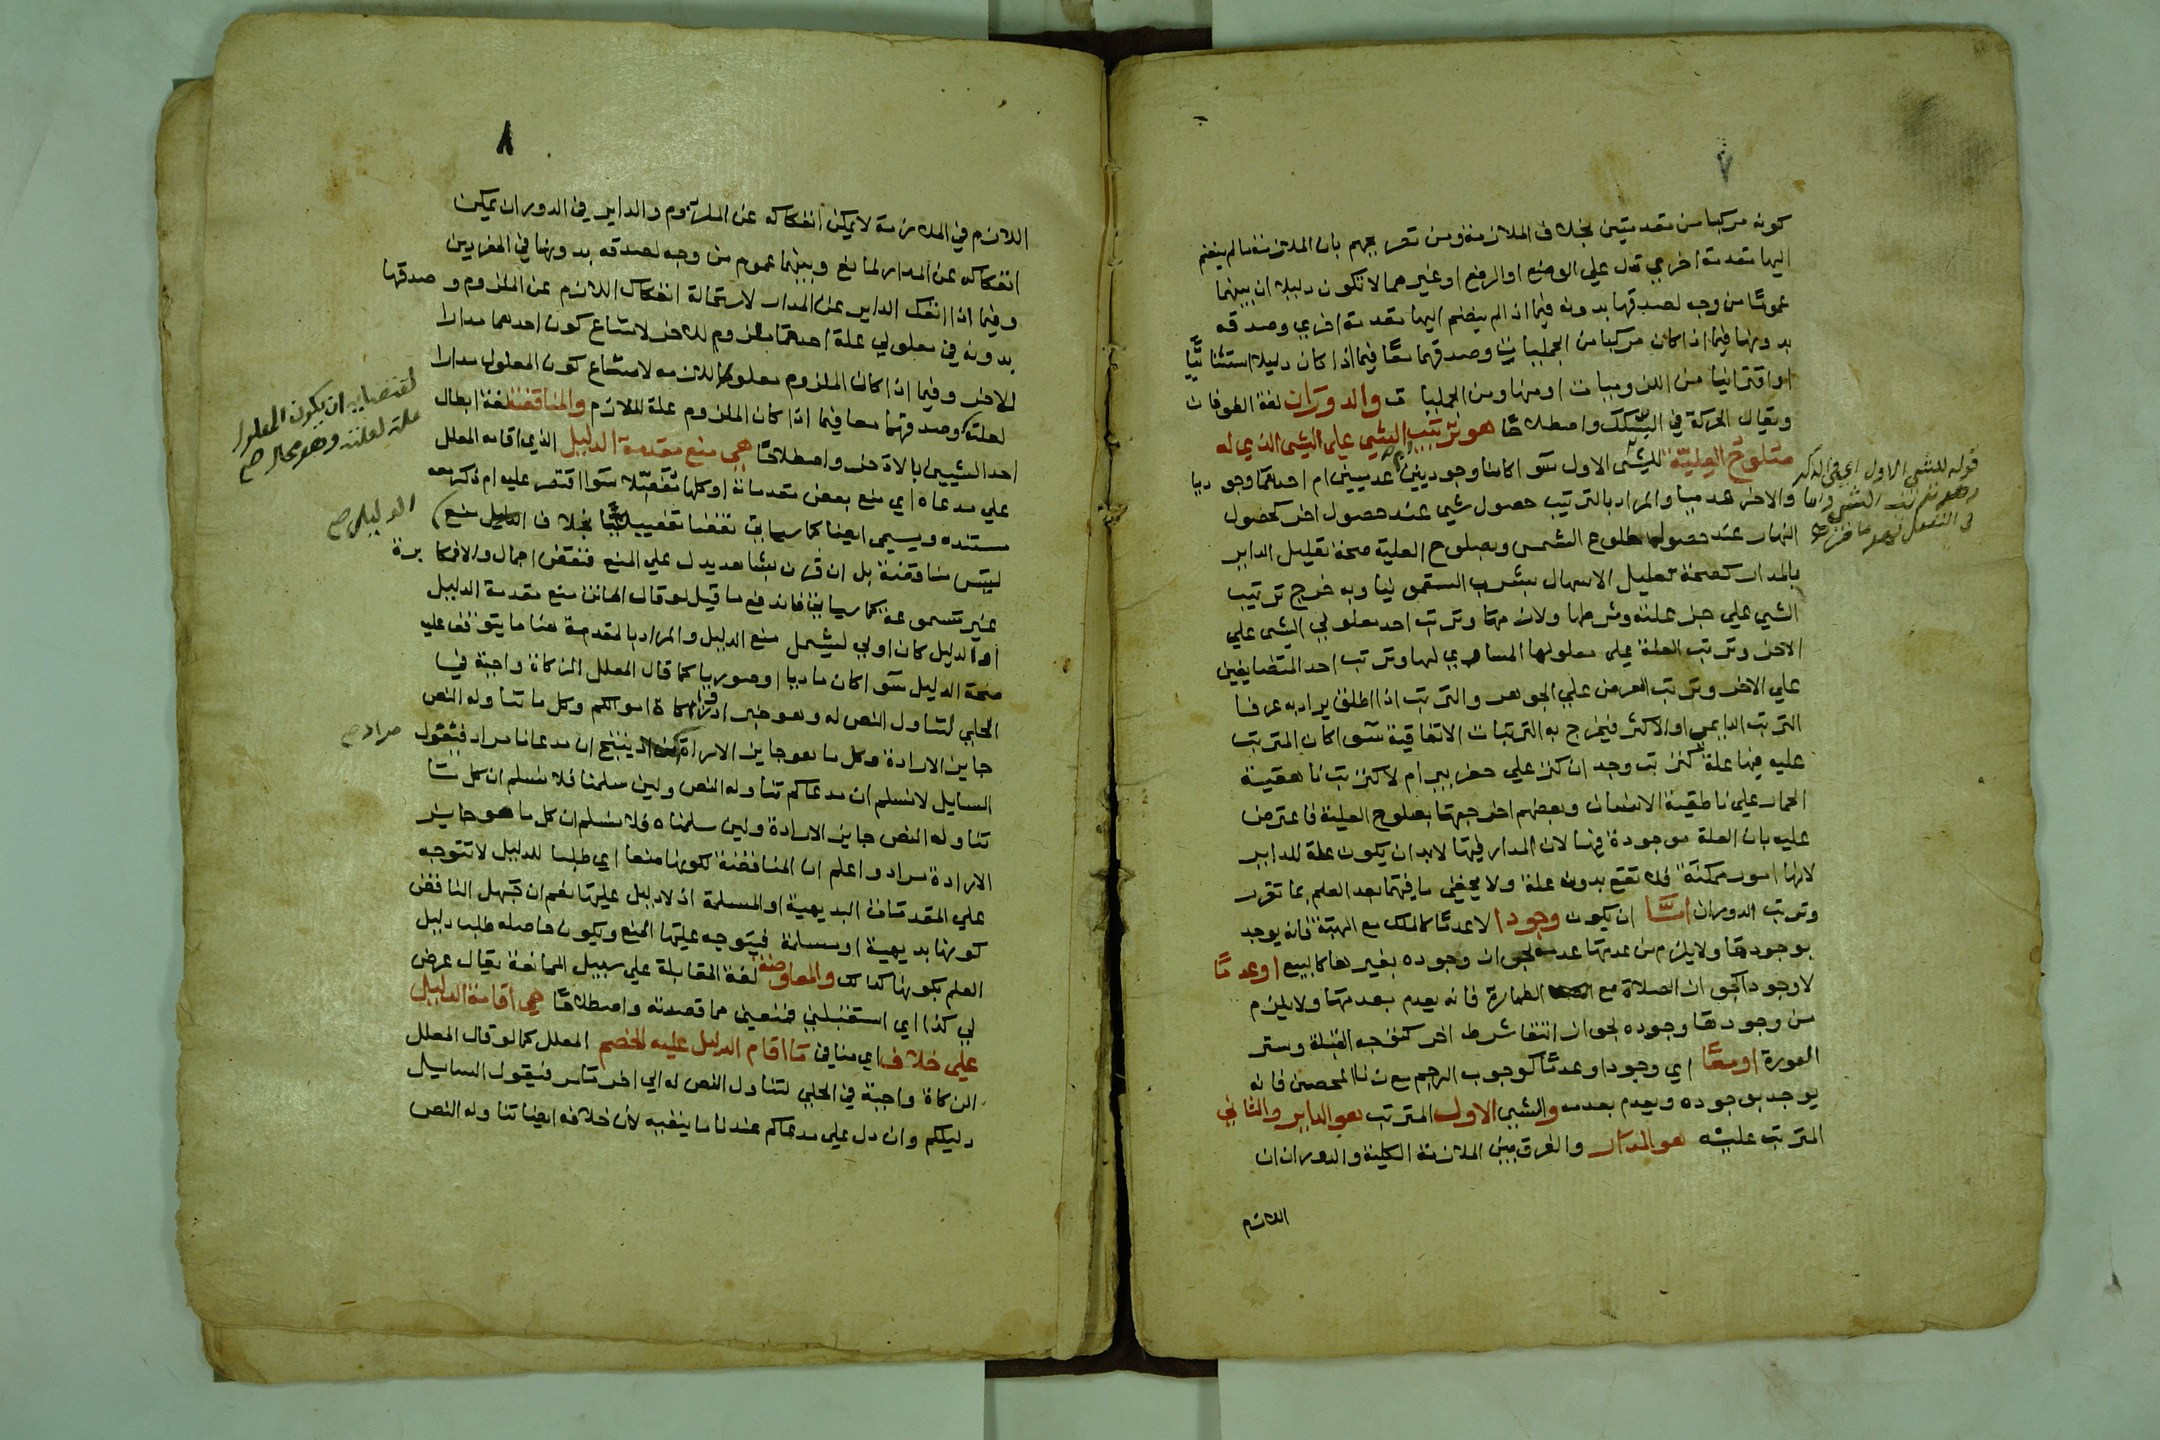 ٧
كونه مركبا من مقدمتين بخلاف الملازمة ومن تصريحهم بان الملازمة ما لم ينضم
اليها مقدمة اخري تدل علي الوضع او الرفع او غيرهما لا تكون دليلا ان بينهما
عموما من وجه لصدقها بدونه فيما اذا لم ينضم اليها مقدمة اخري وصدقه
بدونها فيما اذا كان مركبا من الحمليات وصدقهما معا فيما اذا كان دليلا استثنائيا
او اقترانيا من اللزوميات او منها ومن الحمليات والدوران لغة الطوفان
ويقال الحركة في السكك واصطلاحا هو ترتب الشي علي الشي الذي له
صلوح العلية للشي الاول سوا كانا وجوديين ام عدميين ام احدهما وجوديا
والاخر عدميا والمراد بالترتيب حصول شي عند حصول اخر كحصول
النهار عند حصول طلوع الشمس وبصلوح العلية صحة تعليل الداير
بالمدار كصحة تعليل الاسهال بشرب السقمونيا وبه خرج ترتيب
الشي علي جزء علته وشرطها ولازمها وترتب احد معلولي الشي علي
الاخر وترتب العلة علي معلولها المساوي لها وترتب احد المتضايفين
علي الاخر وترتب العرض علي الجوهر والترتب اذا اطلق يراد به عرفا
الترتب الدايمي او الاكثر فيخرج به الترتبات الاتفاقية سوا كان المترتب
عليه فيها علة كترتب وجدان كنز علي حفر بير ام لا كترتب ناهقية
الحمار علي ناطقية الانسان وبعضهم اخرجها بصلوح العلية فاعترض
عليه بان العلة موجودة فيها لان المدار فيها لابد ان يكون علة للداير
لانها امور ممكنة فلا تقع بدون علة ولا يخفي ما فيهما بعد العلم بما تقرر
وترتب الدوران اما ان يكون وجودا لا عدما كالملك مع الهبة فانه يوجد
بوجودها ولا يلزم من عدمها عدمه لجواز وجوده بغيرها كالبيع او عدما
لا وجودا كجواز الصلاة مع الطهارة فانه يعدم بعدمها ولا يلزم
من وجودها وجوده لجواز انتفا شرط اخر كتوجه القبلة وستر
العورة او معا اي وجودا وعدما كوجوب الرجم مع زنا المحصن فانه
يوجد بوجوده ويعدم بعدمه والشي الاول المترتب هو الداير والثاني
المترتب عليه هو المدار والفرق بين الملازمة الكلية والدوران ان
اللازم
قوله للشي الاول اي في الذكر
٨
اللازم في الملازمة لا يمكن انفكاكه عن الملزوم والداير في الدوران يمكن
انفكاكه عن المدار لمانع وبينهما عموم من وجه لصدقه بدونها في المفردين
وفيما اذا انفك الداير عن المدار لاستحالة انفكاك اللازم عن الملزوم وصدقها
بدونه في معلولي علة احدهما ملزوم للاخر لامتناع كون احدهما مدارا
للاخر وفيما اذا كان الملزوم معلولا للازمه لامتناع كون المعلول مدارا
لعلته وصدقهما معا فيما اذا كان الملزوم علة للازم والمناقضة لغة ابطال
احد الشيين بالاخر واصطلاحا هي منع مقدمة الدليل الذي اقامه المعلل
علي مدعاه اي منع بعض مقدماته او كلها تفصيلا سوا اقتصر عليه ام ذكر معه
مستنده ويسمي ايضا كما سياتي نقضا تفصيليا بخلاف منع
ليس مناقضة بل ان قرن بشاهد يدل علي المنع فنقض اجمالي والا فمكابرة
غير مسموعة كما سياتي فاندفع ما قيل لو قال الماتن منع مقدمة الدليل
او الدليل كان اولي ليشمل منع الدليل والمراد بالمقدمة هنا ما يتوقف عليه
صحة الدليل سوا كان ماديا او صوريا كما قال المعلل الزكاة واجبة في
الحلي لتناول النص له وهو خبر ادوا زكاة اموالكم وكل ما تناوله النص
جايز الارادة وكل ما هو جايز الارادة ينتج ان مدعانا مراد فيقول
السايل لا نسلم ان مدعاكم تناوله النص ولين سلمنا فلا نسلم ان كل ما
تناوله النص جايز الارادة ولين سلمناه فلا نسلم ان كل ما هو جايز
الارادة مراد واعلم ان المناقضة لكونها منعا اي طلبا للدليل لا تتوجه
علي المقدمات البديهية او المسلمة اذ لا دليل عليها نعم ان جهل الناقض
كونها بديهية او مسلمة فيتوجه عليها المنع ويكون حاصله طلب دليل
العلم بكونها كذلك والمعارضة لغة المقابلة علي سبيل الممانعة يقال عرض
لي كذا اي استقبلني فمنعني مما قصدته واصطلاحا هي اقامة الدليل
علي خلاف اي منافي ما اقام الدليل عليه الخصم المعلل كما لو قال المعلل
الزكاة واجبة في الحلي لتناول النص له الي اخر ما مر فيقول السايل
دليلكم وان دل علي مدعاكم عندنا ما ينفيه لان خلافه ايضا تناوله النص
لاقتضايه ان يكون المعلول
علة لعلته وهو محال صح
الدليل صح
مراد صح